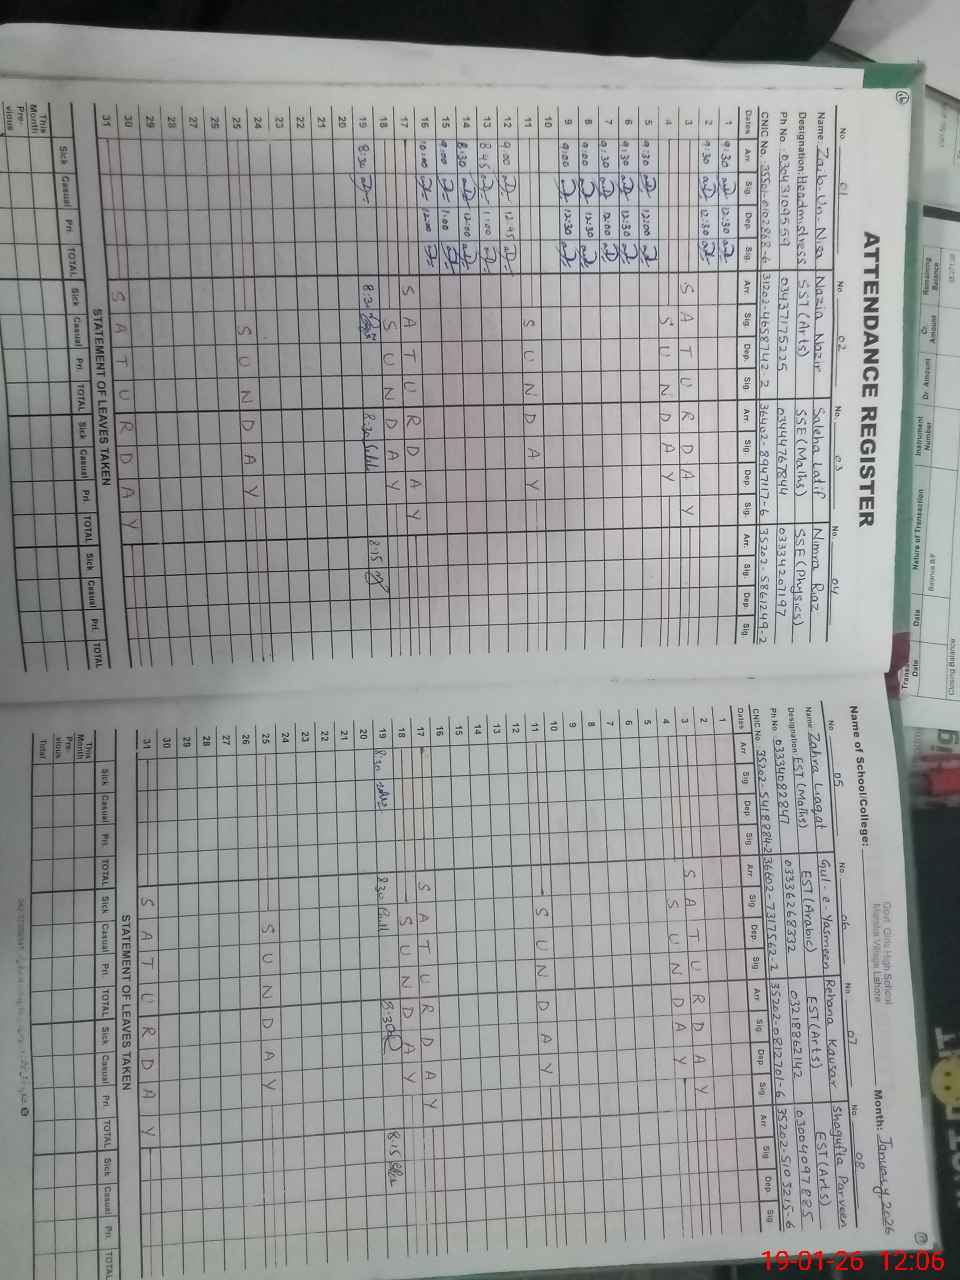 ATTENDANCE REGISTER
No. 01 No. 02 No. 03 No. 04
Name Zaib-Un-Nisa Nazia Nazir Saleha Latif Nimra Riaz
Designation Headmistress SST (Arts) SSE (Maths) SSE (Physics)
Ph No. 03043109559 03437175225 03444767844 03334207197
CNIC No. 31202-4658742-2 36402-8947117-6 35202-5861249-2
Dates Arr. Sig. Dep. Sig. Arr. Sig. Dep. Sig. Arr. Sig. Dep. Sig. Arr. Sig. Dep. Sig.
1 9:30 12:30
2 9:30 12:30
3 SATURDAY
4 SUNDAY
5 9:30 12:00
6 9:30 12:30
7 9:30 12:00
8 9:00 12:30
9 9:00 12:30
10
11 SUNDAY
12 9:00 12:45
13 8:45 1:00
14 8:30 12:00
15 9:00 1:00
16 10:00 12:00
17 SATURDAY
18 SUNDAY
19 8:30 8:30 8:30 8:15
20
21
22
23
24
25 SUNDAY
26
27
28
29
30
31 SATURDAY
STATEMENT OF LEAVES TAKEN
Sick Casual Pri. TOTAL Sick Casual Pri. TOTAL Sick Casual Pri. TOTAL Sick Casual Pri. TOTAL
This Month
Pre-vious
Name of School/College: Govt. Girls High School
Lahore
Month: January, 2026
No. 05 No. 06 No. 07 No. 08
Name Zahra Liaqat Gul-e-Yasmeen Rehana Kausar Shagufta Parveen
Designation EST (Maths) EST (Arabic) EST (Arts) EST (Arts)
Ph No. 03334082847 03336268332 03218862142 03004097885
CNIC No. 35202-5418884-2 36602-7317562-2 35202-0812701-6 35202-5103215-6
Dates Arr. Sig. Dep. Sig. Arr. Sig. Dep. Sig. Arr. Sig. Dep. Sig. Arr. Sig. Dep. Sig.
1
2
3 SATURDAY
4 SUNDAY
5
6
7
8
9
10
11 SUNDAY
12
13
14
15
16
17 SATURDAY
18 SUNDAY
19 8:30 8:30 8:30 8:15
20
21
22
23
24
25 SUNDAY
26
27
28
29
30
31 SATURDAY
STATEMENT OF LEAVES TAKEN
Sick Casual Pri. TOTAL Sick Casual Pri. TOTAL Sick Casual Pri. TOTAL Sick Casual Pri. TOTAL
This Month
Pre-vious
Total
Closing Balance
Date
Nature of Transaction
Number
Instrument
Amount
Remaining Balance
19-01-26 12:06